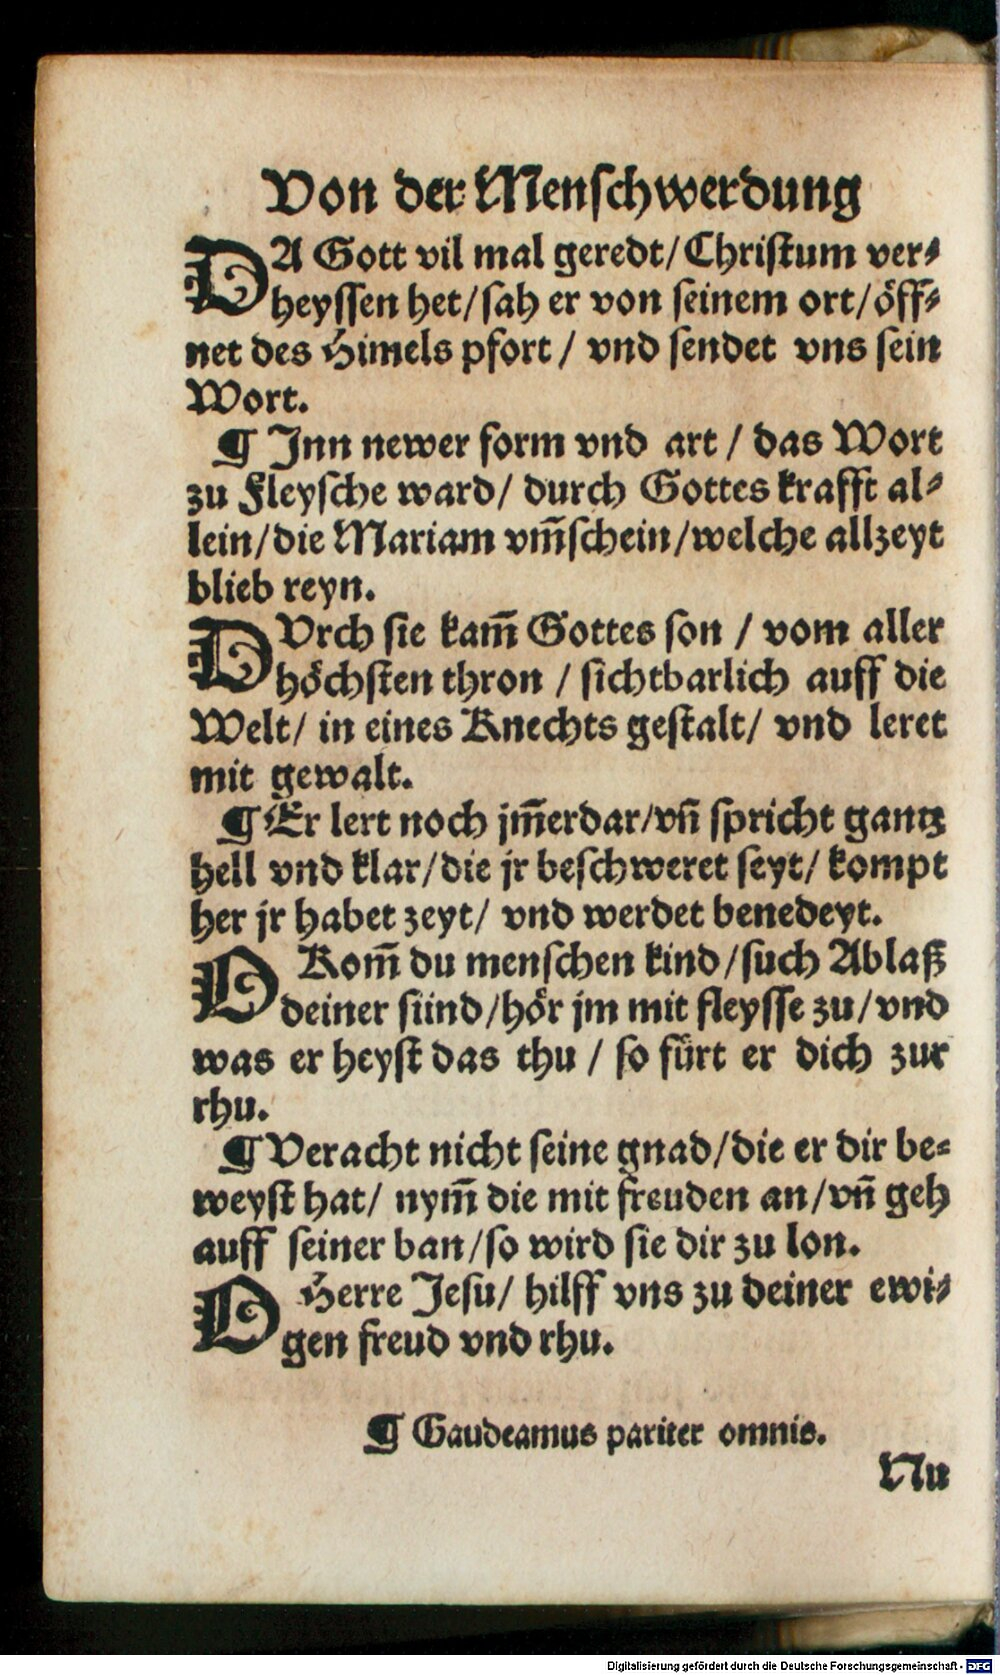 Von der Menschwerdung
DA Gott vil mal geredt/Christum ver⸗
heyssen het/sah er von seinem ort/öff⸗
net des Himels pfort / vnd sendet vns sein
Wort.
¶ Inn newer form vnd art / das Wort
zu Fleysche ward/ durch Gottes krafft al⸗
lein/die Mariam vm̃schein/welche allzeyt
blieb reyn.
DVrch sie kam̃ Gottes son / vom aller
höchsten thron / sichtbarlich auff die
Welt/ in eines Knechts gestalt/ vnd leret
mit gewalt.
¶ Er lert noch jm̃erdar/vñ spricht gantz
hell vnd klar/die jr beschweret seyt/ kompt
her jr habet zeyt/ vnd werdet benedeyt.
O Kom̃ du menschen kind/such Ablaß
deiner sünd/hör jm mit fleysse zu/vnd
was er heyst das thu / so fürt er dich zur
rhu.
¶ Veracht nicht seine gnad/die er dir be⸗
weyst hat/ nym̃ die mit freuden an/vñ geh
auff seiner ban/so wird sie dir zu lon.
O Herre Jesu/ hilff vns zu deiner ewi⸗
gen freud vnd rhu.
¶ Gaudeamus pariter omnis.
Nu
Digitalisierung gefördert durch die Deutsche Forschungsgemeinschaft - DFG